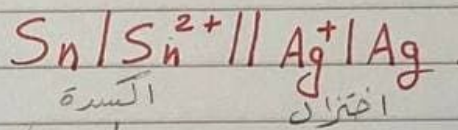 Sn | Sn²⁺ || Ag⁺ | Ag
اكسدة اختزال